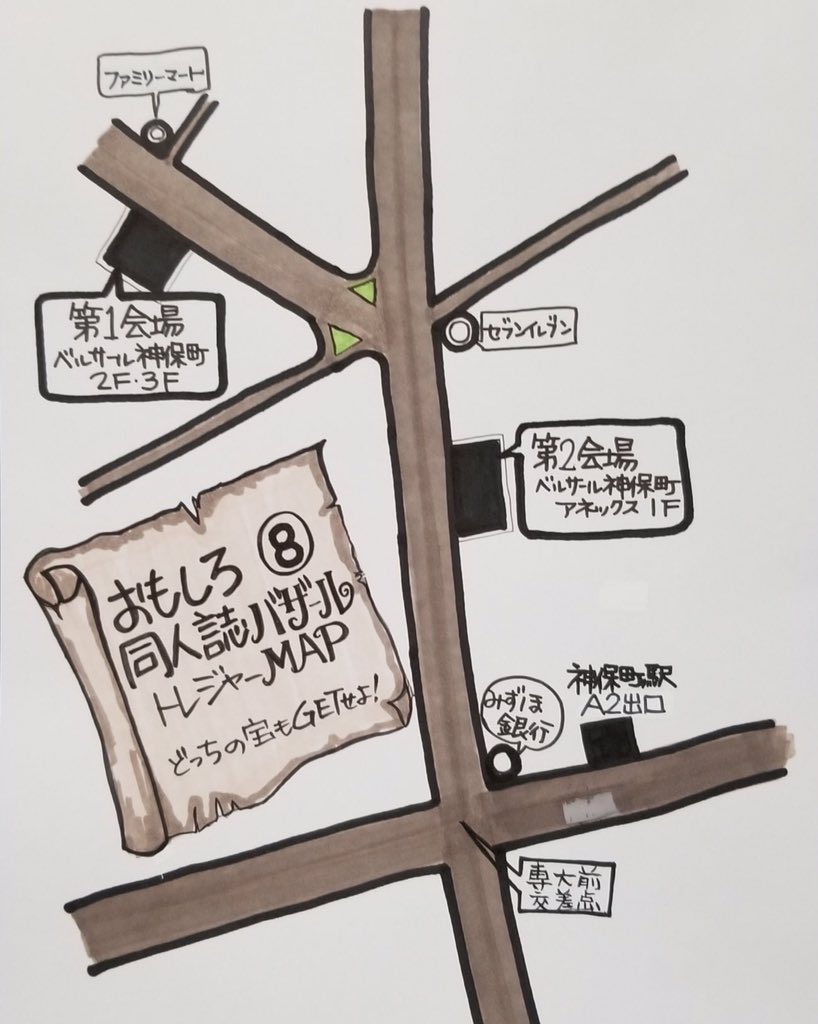 ファミリーマート
第1会場
ベルサール神保町
2F・3F
セブンイレブン
第2会場
ベルサール神保町
アネックス1F
おもしろ⑧
同人誌バザール
トレジャーMAP
どっちの宝もGETせよ!
みずほ
銀行
神保町駅
A2出口
専大前
交差点